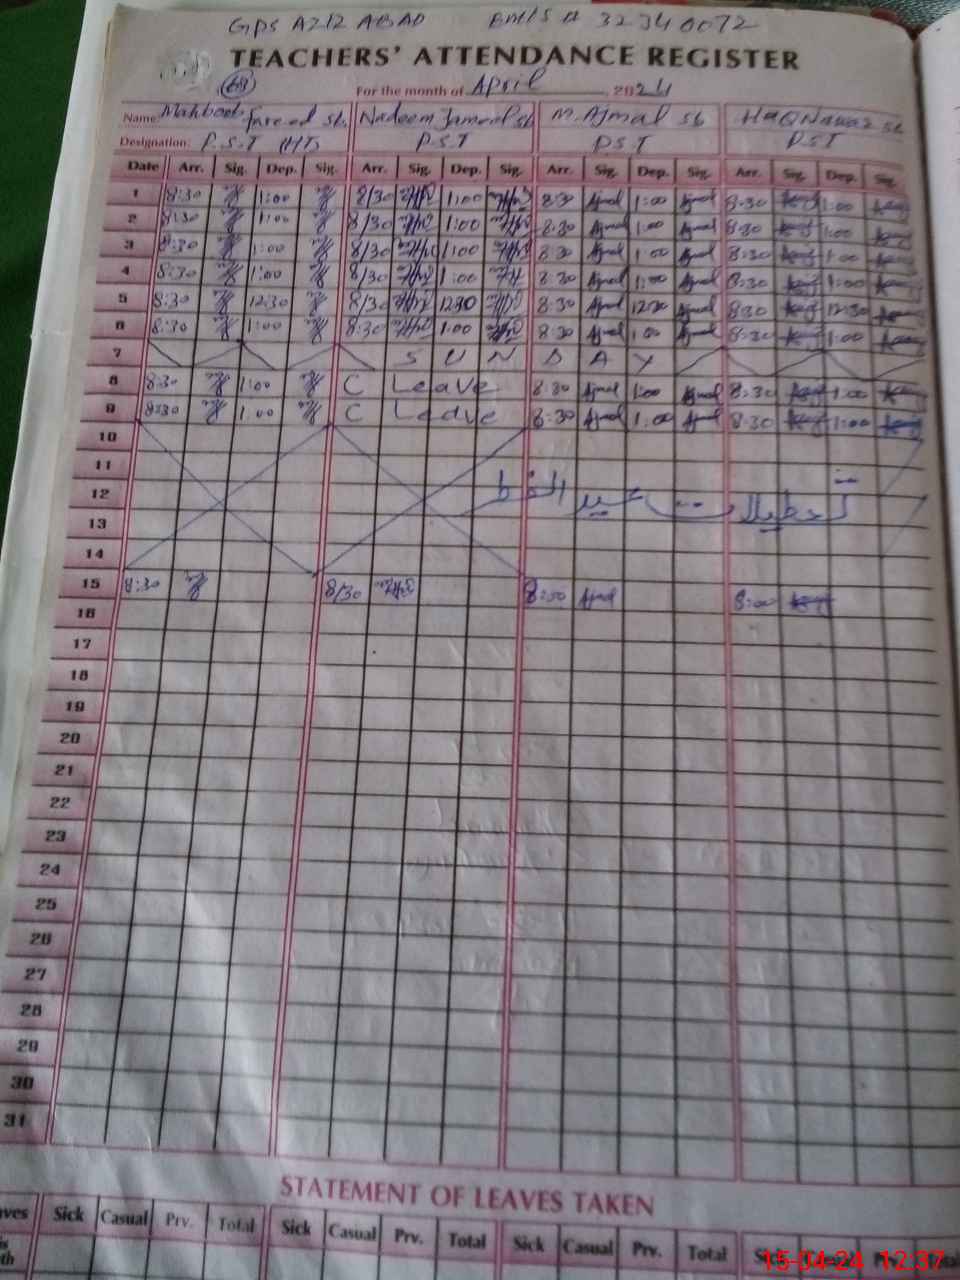 GPS AZIZ ABAD EMIS # 32340072
TEACHERS' ATTENDANCE REGISTER
68
For the month of April, 2024
Name: Mahboob Fareed sb. Nadeem Jameel sb M. Ajmal sb HaQ Nawaz sb
Designation: P.S.T (HT) P.S.T P.S.T P.S.T
Date Arr. Sig. Dep. Sig. Arr. Sig. Dep. Sig. Arr. Sig. Dep. Sig. Arr. Sig. Dep. Sig.
1 8:30 1:00 8/30 1:00 8:30 Ajmal 1:00 Ajmal 8:30 1:00
2 8:30 1:00 8/30 1:00 8:30 Ajmal 1:00 Ajmal 8:30 1:00
3 8:30 1:00 8/30 1:00 8:30 Ajmal 1:00 Ajmal 8:30 1:00
4 8:30 1:00 8/30 1:00 8:30 Ajmal 1:00 Ajmal 8:30 1:00
5 8:30 12:30 8/30 1230 8:30 Ajmal 12:30 Ajmal 8:30 12:30
6 8:30 1:00 8:30 1:00 8:30 Ajmal 1:00 Ajmal 8:30 1:00
7 S U N D A Y
8 8:30 1:00 C Leave 8:30 Ajmal 1:00 Ajmal 8:30 1:00
9 8:30 1:00 C Leave 8:30 Ajmal 1:00 Ajmal 8:30 1:00
10
11
12 تعطیلات عید الفطر
13
14
15 8:30 8/30 8:00 Ajmal 8:00
16
17
18
19
20
21
22
23
24
25
26
27
28
29
30
31
STATEMENT OF LEAVES TAKEN
Sick Casual Prv. Total Sick Casual Prv. Total Sick Casual Prv. Total
15-04-24 12:37